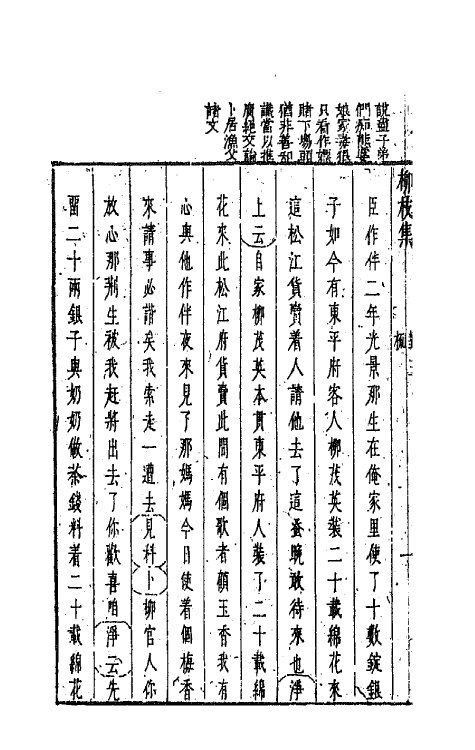 說盡子弟
們痴態婆
娘家毒狠
只看作嫖
賭下場頭
猶非善知
識當以進
廣絕交論
卜居漁父
諸文
柳枝集
臣作伴二年光景那生在俺家里使了十數錠銀
子如今有東平府客人柳茂英裝二十載綿花來
這松江貨賣着人請他去了這蚤晚敢待來也淨
上云自家柳茂英本貫東平府人裝了二十載綿
花來此松江府貨賣此間有個歌者顧玉香我有
心與他作伴夜來見了那媽媽今日使着個梅香
來請事必諧矣我索走一遭去見科卜柳官人你
放心那荆生被我赶將出去了你歡喜咱淨云先
留二十兩銀子與奶奶做茶錢料着二十載綿花